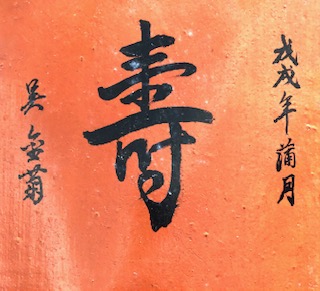 戊戌年蒲月
壽
吴金菊